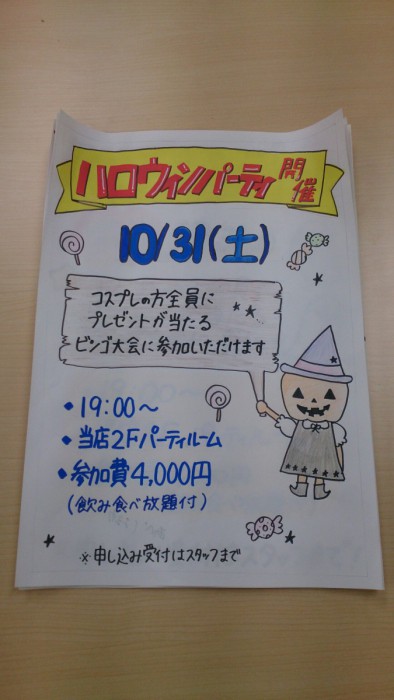 ハロウィンパーティ開催
10/31(土)
コスプレの方全員に
プレゼントが当たる
ビンゴ大会に参加いただけます
・19:00〜
・当店2Fパーティルーム
・参加費4,000円
(飲み食べ放題付)
※申し込み受付はスタッフまで